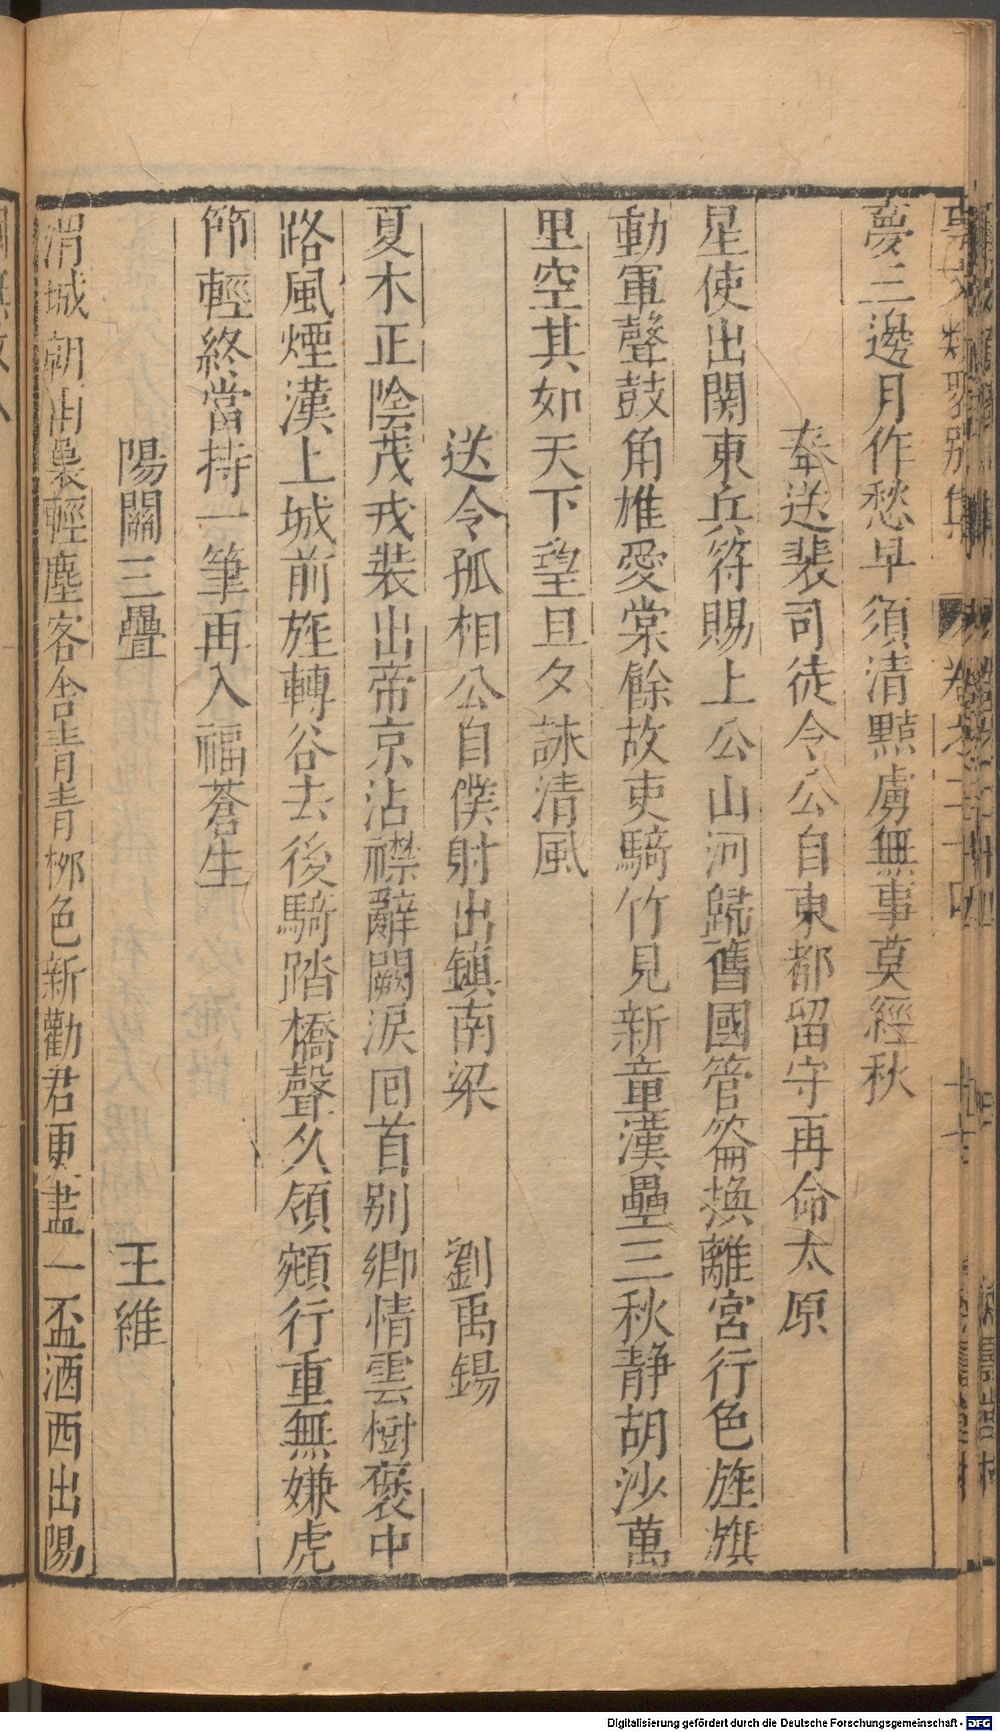 夢三邊月作愁早須清點虜無事莫經秋
奉送裴司徒令公自東都留守再命太原
星使出関東兵符賜上公山河歸舊國管籥換離宮行色旌旗
動軍聲鼓角雄愛棠餘故吏騎竹見新童漢壘三秋静胡沙萬
里空其如天下望旦夕詠清風
送令孤相公自僕射出鎮南梁 劉禹錫
夏木正陰茂戎裝出帝京沾襟辭闕淚囬首別鄉情雲樹褒中
路風煙漢上城前旌轉谷去後騎踏橋聲久領頻行重無嫌虎
節輕終當持一筆再入福蒼生
陽關三疊 王維
渭城朝雨裛輕塵客舍青青栁色新勸君更盡一盃酒西出陽
Digitalisierung gefördert durch die Deutsche Forschungsgemeinschaft - DFG